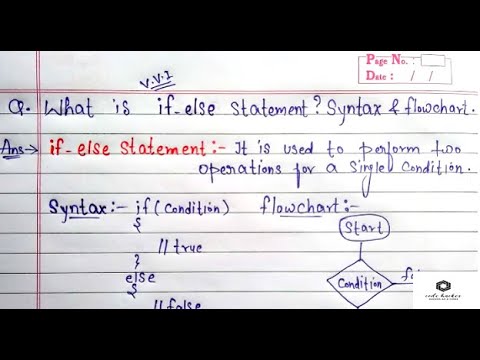 Page No. :
Date : / /
V.V.I
Q. What is if-else statement? Syntax & flowchart.
Ans→ if-else Statement :- It is used to perform two
operations for a single Condition.
Syntax :- if (Condition) flowchart :-
{ Start
// true
}
else Condition
{
// false
code hacker